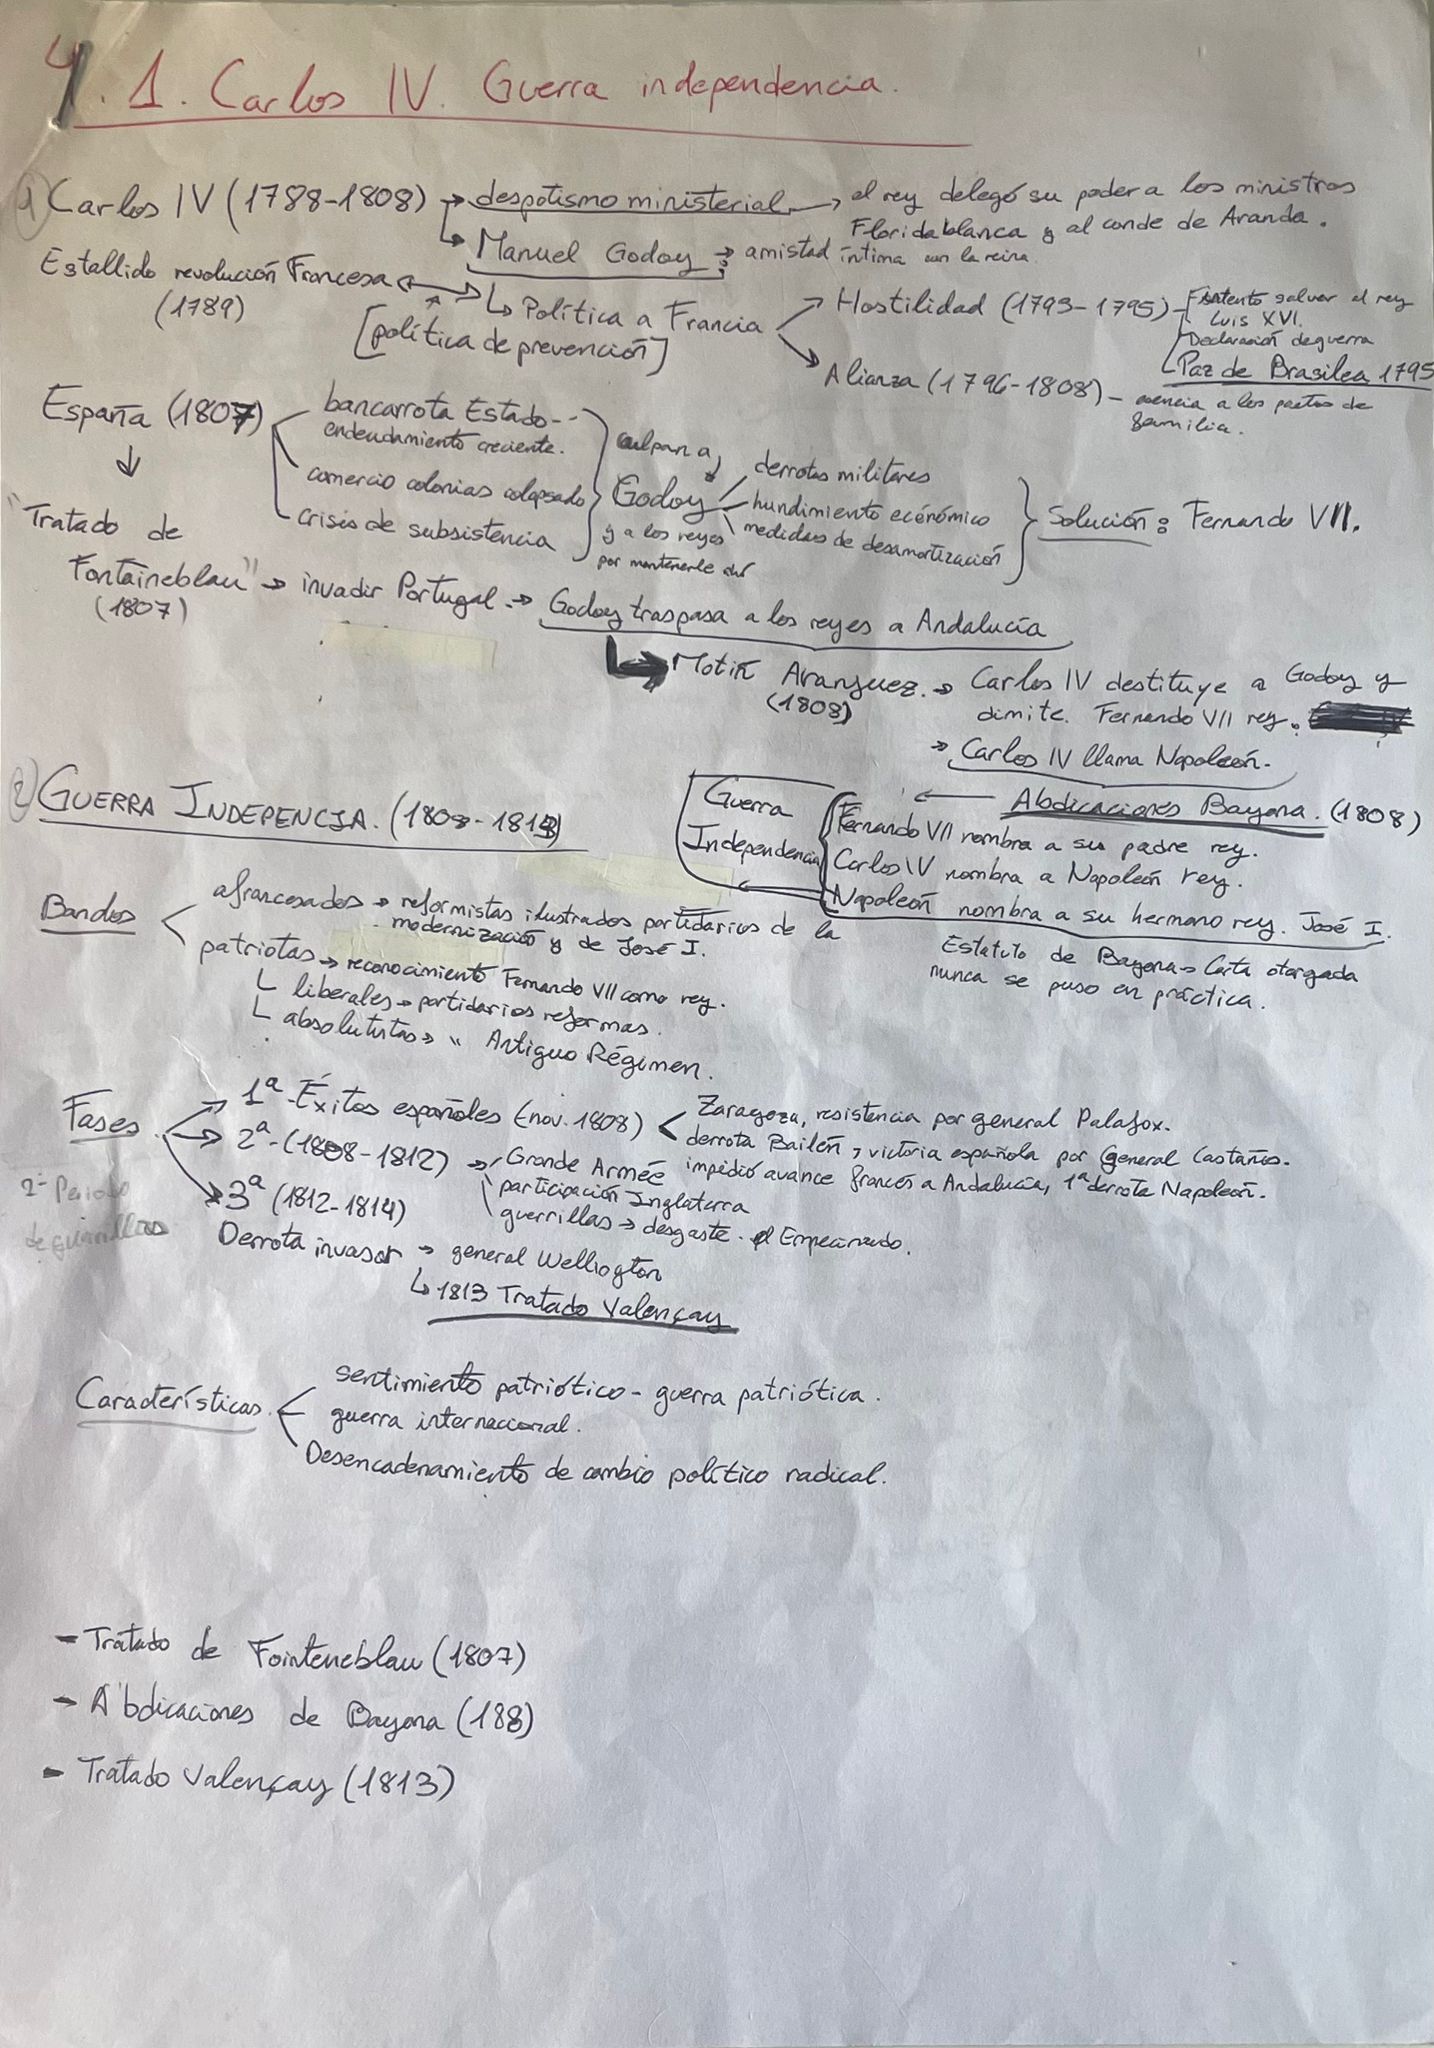 4.1. Carlos IV. Guerra independencia.
1) Carlos IV (1788-1808) → despotismo ministerial → el rey delegó su poder a los ministros
Floridablanca y al conde de Aranda.
↳ Manuel Godoy → amistad íntima con la reina.
Estallido revolución Francesa
(1789)
[política de prevención]
↳ Política a Francia
Hostilidad (1793-1795) - Intento salvar al rey
Luis XVI.
Declaración de guerra
Paz de Brasilea 1795
Alianza (1796-1808) - esencia a los pactos de
familia.
España (1807)
bancarrota Estado--
endeudamiento creciente.
comercio colonias colapsado
crisis de subsistencia
culpan a
Godoy
y a los reyes
por mantenerle ahí
derrotas militares
hundimiento económico
medidas de desamortización
Solución: Fernando VII.
"Tratado de
Fontaineblau" → invadir Portugal. → Godoy traspasa a los reyes a Andalucía
(1807)
↳ Motín Aranjuez. → Carlos IV destituye a Godoy y
(1808)
dimite. Fernando VII rey.
→ Carlos IV llama Napoleón.
2) GUERRA INDEPENCIA. (1808-1813)
Guerra
Independencia
← Abdicaciones Bayona. (1808)
Fernando VII nombra a su padre rey.
Carlos IV nombra a Napoleón rey.
Napoleón nombra a su hermano rey. José I.
Estatuto de Bayona → Carta otorgada
nunca se puso en práctica.
Bandos
afrancesados → reformistas ilustrados partidarios de la
modernización y de José I.
patriotas → reconocimiento Fernando VII como rey.
↳ liberales → partidarios reformas.
↳ absolutistas → " Antiguo Régimen.
Fases
1ª - Éxitos españoles (nov. 1808)
Zaragoza, resistencia por general Palafox.
derrota Bailén, victoria española por General Castaños.
impedió avance francés a Andalucía, 1ª derrota Napoleón.
2ª - (1808-1812) → Grande Armée
participación Inglaterra
guerrillas → desgaste. el Empecinado.
3ª (1812-1814)
Derrota invasor → general Wellington
↳ 1813 Tratado Valençay
2º Periodo
de guerrillas
Características.
sentimiento patriótico - guerra patriótica.
guerra internacional.
Desencadenamiento de cambio político radical.
- Tratado de Fointeneblau (1807)
- Abdicaciones de Bayona (188)
- Tratado Valençay (1813)